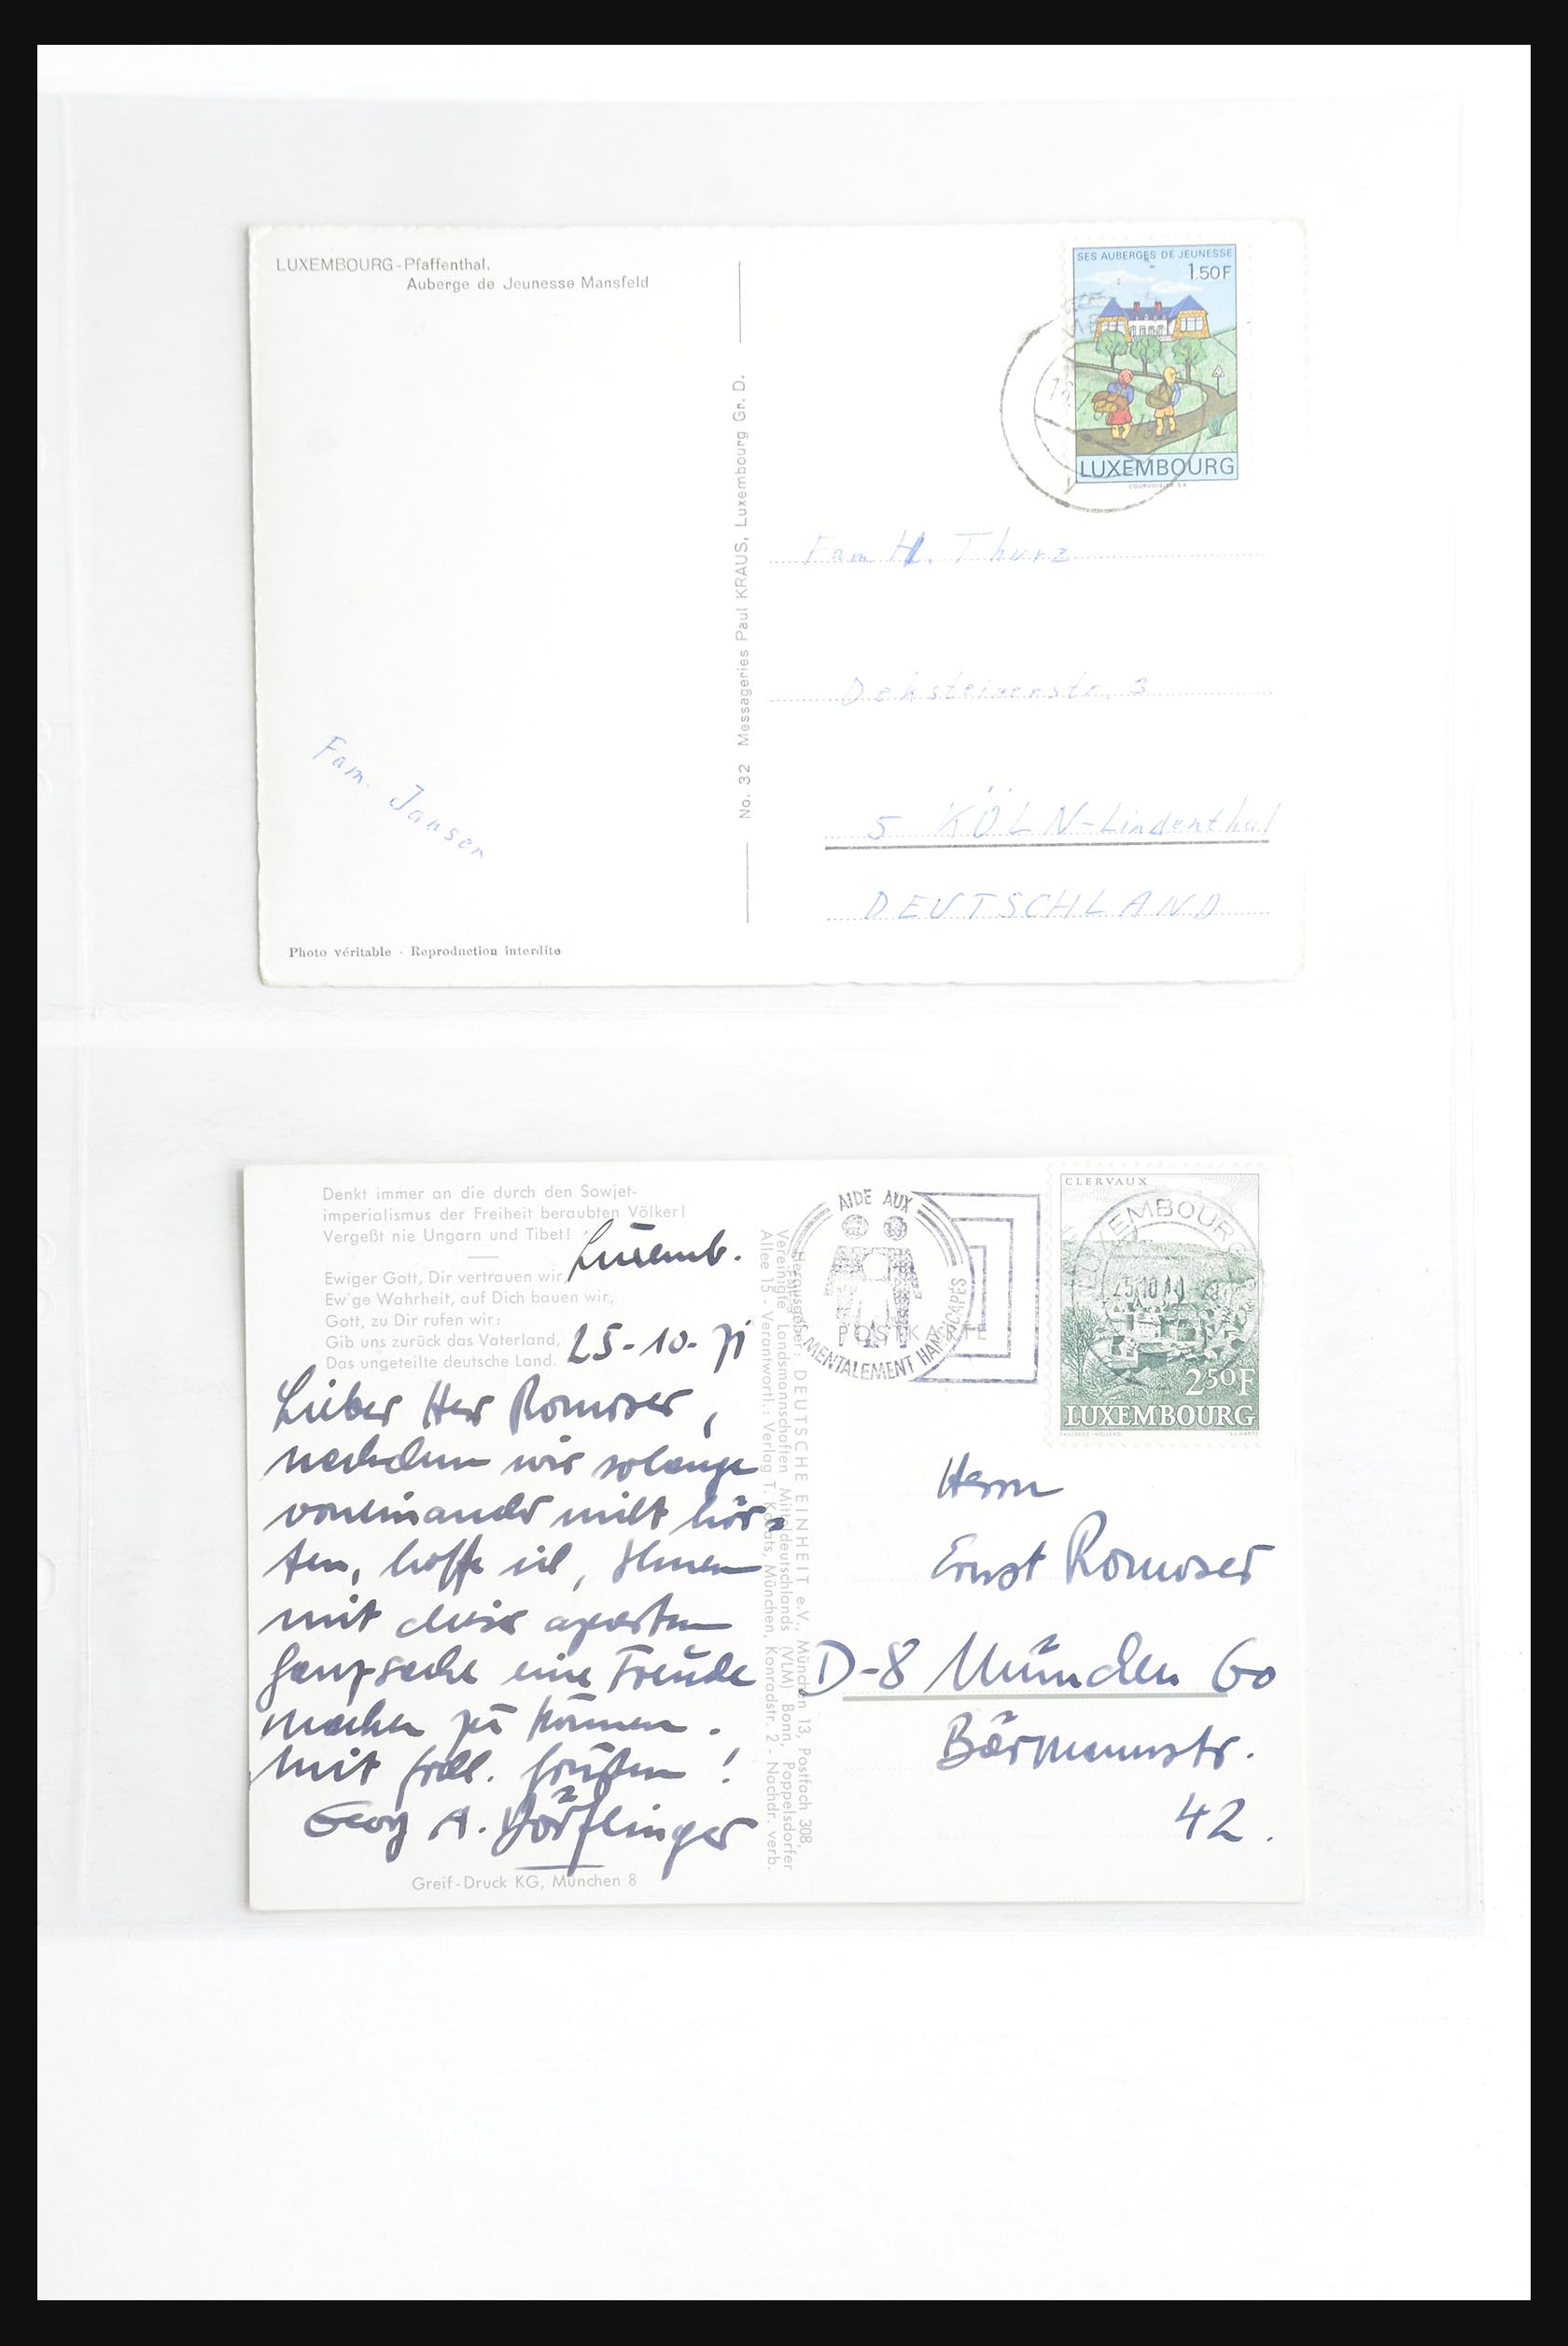 LUXEMBOURG-Pfaffenthal.
Auberge de Jeunesse Mansfeld
SES AUBERGES DE JEUNESSE
1.50F
LUXEMBOURG
COURVOISIER S.A.
No. 32 Messageries Paul KRAUS, Luxembourg Gr. D.
Fam. H. Thurz
Deksteinenstr. 3
5 KÖLN-Lindenthal
DEUTSCHLAND
Fam. Jansen
Photo véritable - Reproduction interdite
Denkt immer an die durch den Sowjet-
imperialismus der Freiheit beraubten Völker!
Vergeßt nie Ungarn und Tibet!
Luxemb.
Ewiger Gott, Dir vertrauen wir,
Ew'ge Wahrheit, auf Dich bauen wir,
Gott, zu Dir rufen wir:
Gib uns zurück das Vaterland,
Das ungeteilte deutsche Land.
25-10-71
Lieber Herr Romoser,
nachdem wir solange
voneinander nicht hör-
ten, hoffe ich, Ihnen
mit dieser aparten
Ganzsache eine Freude
machen zu können.
Mit frdl. Grüßen!
Georg A. Dörflinger
Greif-Druck KG, München 8
Herausgeber: DEUTSCHE EINHEIT e.V., München 13, Postfach 308,
Vereinigte Landsmannschaften Mitteldeutschlands (VLM) Bonn, Poppelsdorfer
Allee 15 - Verantwortl.: Verlag T. Kokats, München, Konradstr. 2 - Nachdr. verb.
AIDE AUX
MENTALEMENT HANDICAPÉS
POSTKARTE
CLERVAUX
LUXEMBOURG
25 10
2.50F
LUXEMBOURG
Herrn
Ernst Romoser
D-8 München 60
Bärmannstr.
42.